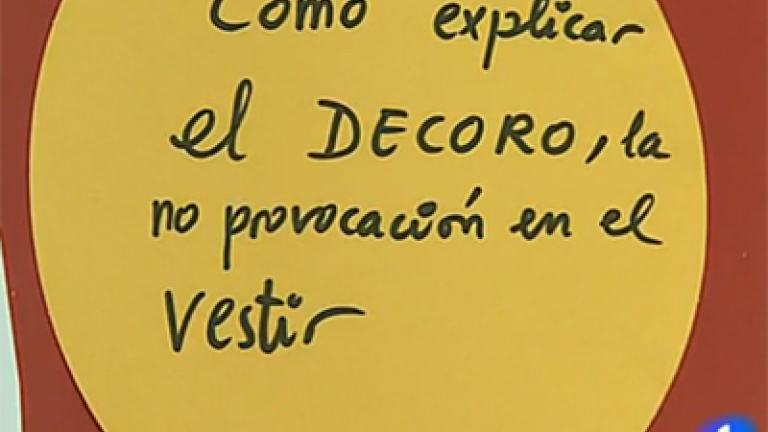 Como explicar
el DECORO, la
no provocación en el
vestir
1